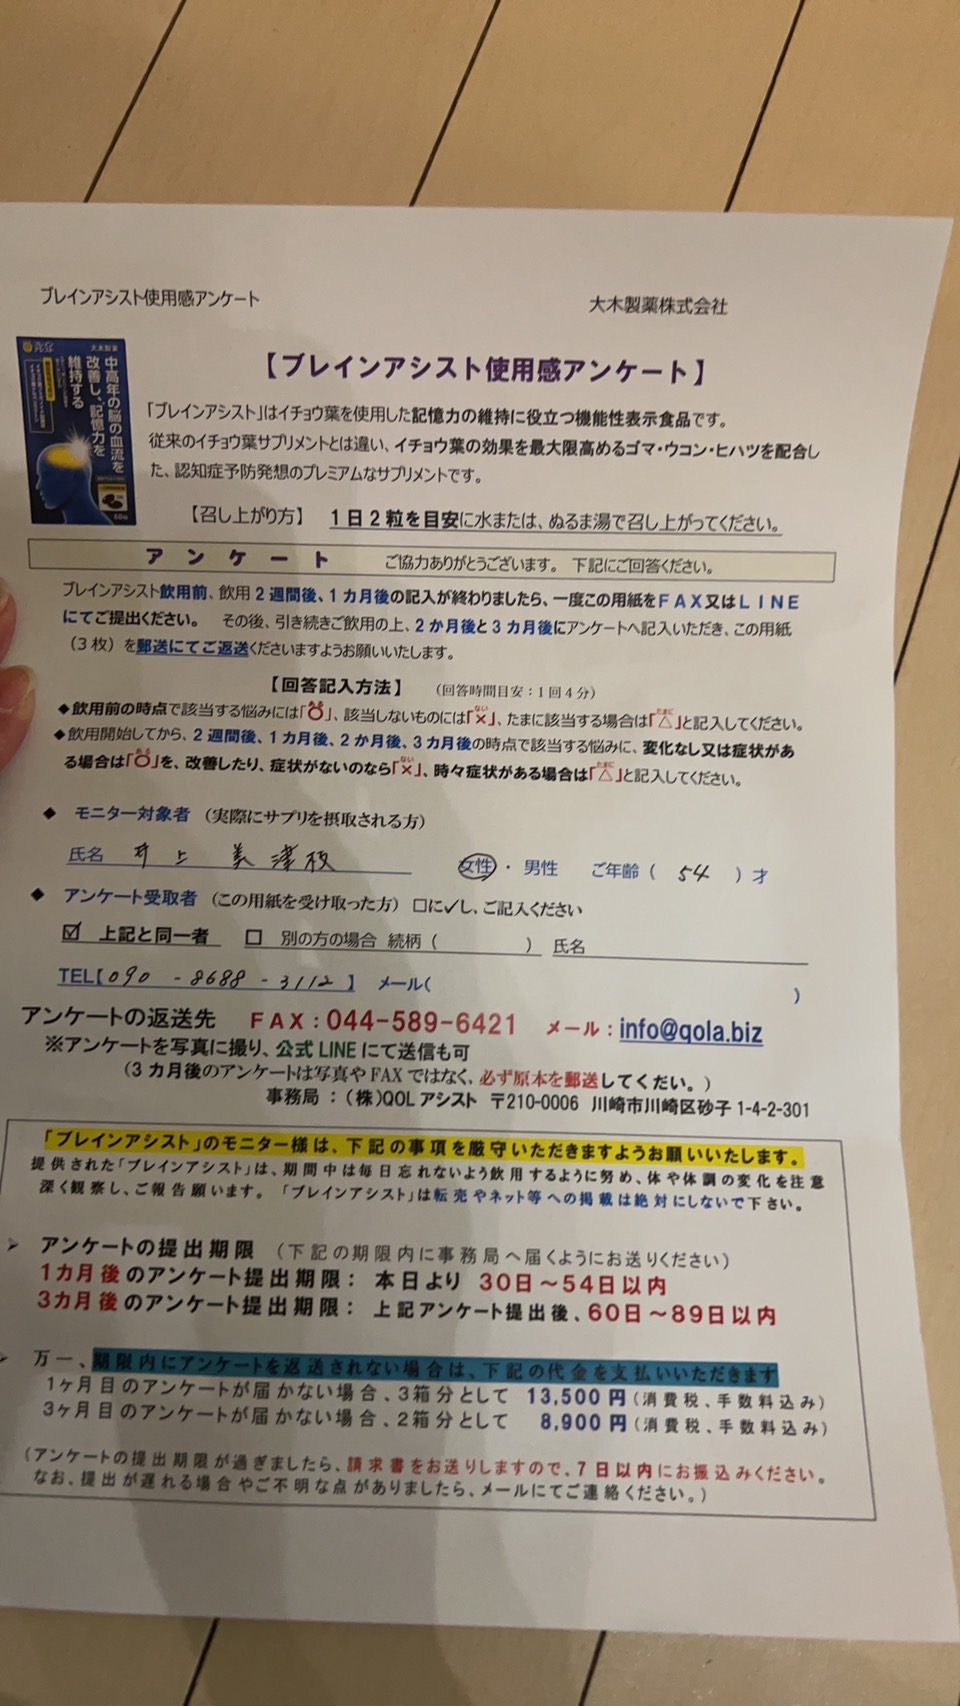 ブレインアシスト使用感アンケート
大木製薬株式会社
【ブレインアシスト使用感アンケート】
大木製薬
中高年の脳の血流を
改善し、記憶力を
維持する
60粒
「ブレインアシスト」はイチョウ葉を使用した記憶力の維持に役立つ機能性表示食品です。
従来のイチョウ葉サプリメントとは違い、イチョウ葉の効果を最大限高めるゴマ・ウコン・ヒハツを配合し
た、認知症予防発想のプレミアムなサプリメントです。
【召し上がり方】 1日2粒を目安に水または、ぬるま湯で召し上がってください。
アンケート ご協力ありがとうございます。 下記にご回答ください。
ブレインアシスト飲用前、飲用2週間後、1カ月後の記入が終わりましたら、一度この用紙をFAX又はLINE
にてご提出ください。 その後、引き続きご飲用の上、2か月後と3カ月後にアンケートへ記入いただき、この用紙
（3枚）を郵送にてご返送くださいますようお願いいたします。
【回答記入方法】 （回答時間目安：1回4分）
◆飲用前の時点で該当する悩みには「○」、該当しないものには「×」、たまに該当する場合は「△」と記入してください。
◆飲用開始してから、2週間後、1カ月後、2か月後、3カ月後の時点で該当する悩みに、変化なし又は症状があ
る場合は「○」を、改善したり、症状がないのなら「×」、時々症状がある場合は「△」と記入してください。
◆ モニター対象者 （実際にサプリを摂取される方）
氏名 井上 美津枝 女性・男性 ご年齢（ 54 ）才
◆ アンケート受取者 （この用紙を受け取った方）□に✓し、ご記入ください
☑ 上記と同一者 □ 別の方の場合 続柄（ ） 氏名
TEL【090-8688-3112】 メール( )
アンケートの返送先 FAX：044-589-6421 メール：info@qola.biz
※アンケートを写真に撮り、公式LINEにて送信も可
（3カ月後のアンケートは写真やFAXではなく、必ず原本を郵送してくだい。）
事務局：（株）QOLアシスト 〒210-0006 川崎市川崎区砂子1-4-2-301
「ブレインアシスト」のモニター様は、下記の事項を厳守いただきますようお願いいたします。
提供された「ブレインアシスト」は、期間中は毎日忘れないよう飲用するように努め、体や体調の変化を注意
深く観察し、ご報告願います。「ブレインアシスト」は転売やネット等への掲載は絶対にしないで下さい。
➢ アンケートの提出期限 （下記の期限内に事務局へ届くようにお送りください）
1カ月後のアンケート提出期限： 本日より 30日～54日以内
3カ月後のアンケート提出期限： 上記アンケート提出後、60日～89日以内
➢ 万一、期限内にアンケートを返送されない場合は、下記の代金を支払いいただきます
1ヶ月目のアンケートが届かない場合、3箱分として 13,500円（消費税、手数料込み）
3ヶ月目のアンケートが届かない場合、2箱分として 8,900円（消費税、手数料込み）
（アンケートの提出期限が過ぎましたら、請求書をお送りしますので、7日以内にお振込みください。
なお、提出が遅れる場合やご不明な点がありましたら、メールにてご連絡ください。）